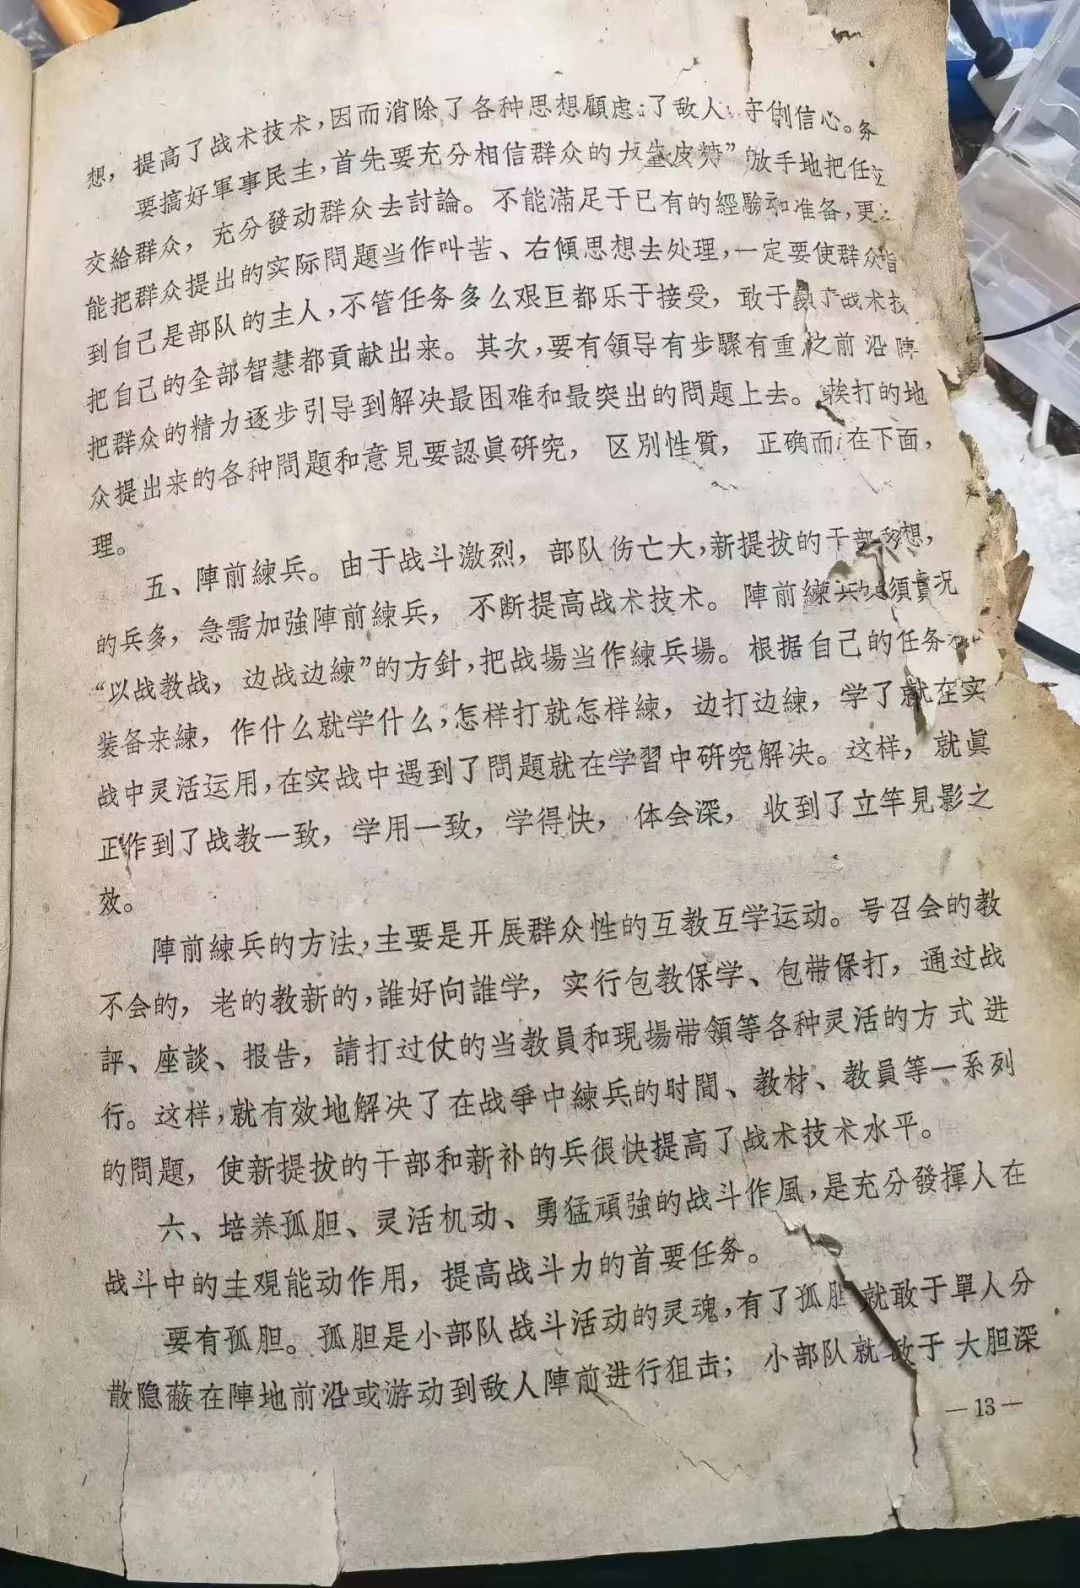 想，提高了战术技术，因而消除了各种思想顧虑 了敌人 守 信心。务
要搞好軍事民主，首先要充分相信群众的 皮 ” 放手地把任
交給群众，充分發动群众去討論。不能滿足于已有的經驗和准备，更
能把群众提出的实际問題当作叫苦、右傾思想去处理，一定要使群众
到自己是部队的主人，不管任务多么艰巨都乐于接受，敢于 战术技
把自己的全部智慧都貢献出来。其次，要有領导有步驟有重 之前沿陣
把群众的精力逐步引导到解决最困难和最突出的問題上去。 挨打的地
众提出来的各种問題和意見要認眞研究，区別性質，正确而 在下面，
理。
五、陣前練兵。由于战斗激烈，部队伤亡大，新提拔的干部 想，
的兵多，急需加強陣前練兵，不断提高战术技术。陣前練兵 須 况
“以战教战，边战边練”的方針，把战場当作練兵場。根据自己的任务
装备来練，作什么就学什么，怎样打就怎样練，边打边練，学了就在实
战中灵活运用，在实战中遇到了問題就在学習中研究解决。这样，就眞
正作到了战教一致，学用一致，学得快，体会深，收到了立竿見影之
效。
陣前練兵的方法，主要是开展群众性的互教互学运动。号召会的教
不会的，老的教新的，誰好向誰学，实行包教保学、包带保打，通过战
評、座談、报告，請打过仗的当教員和現場带領等各种灵活的方式进
行。这样，就有效地解决了在战爭中練兵的时間、教材、教員等一系列
的問題，使新提拔的干部和新补的兵很快提高了战术技术水平。
六、培养孤胆、灵活机动、勇猛頑強的战斗作風，是充分發揮人在
战斗中的主观能动作用，提高战斗力的首要任务。
要有孤胆。孤胆是小部队战斗活动的灵魂，有了孤胆就敢于單人分
散隐蔽在陣地前沿或游动到敌人陣前进行狙击；小部队就敢于大胆深
—13—